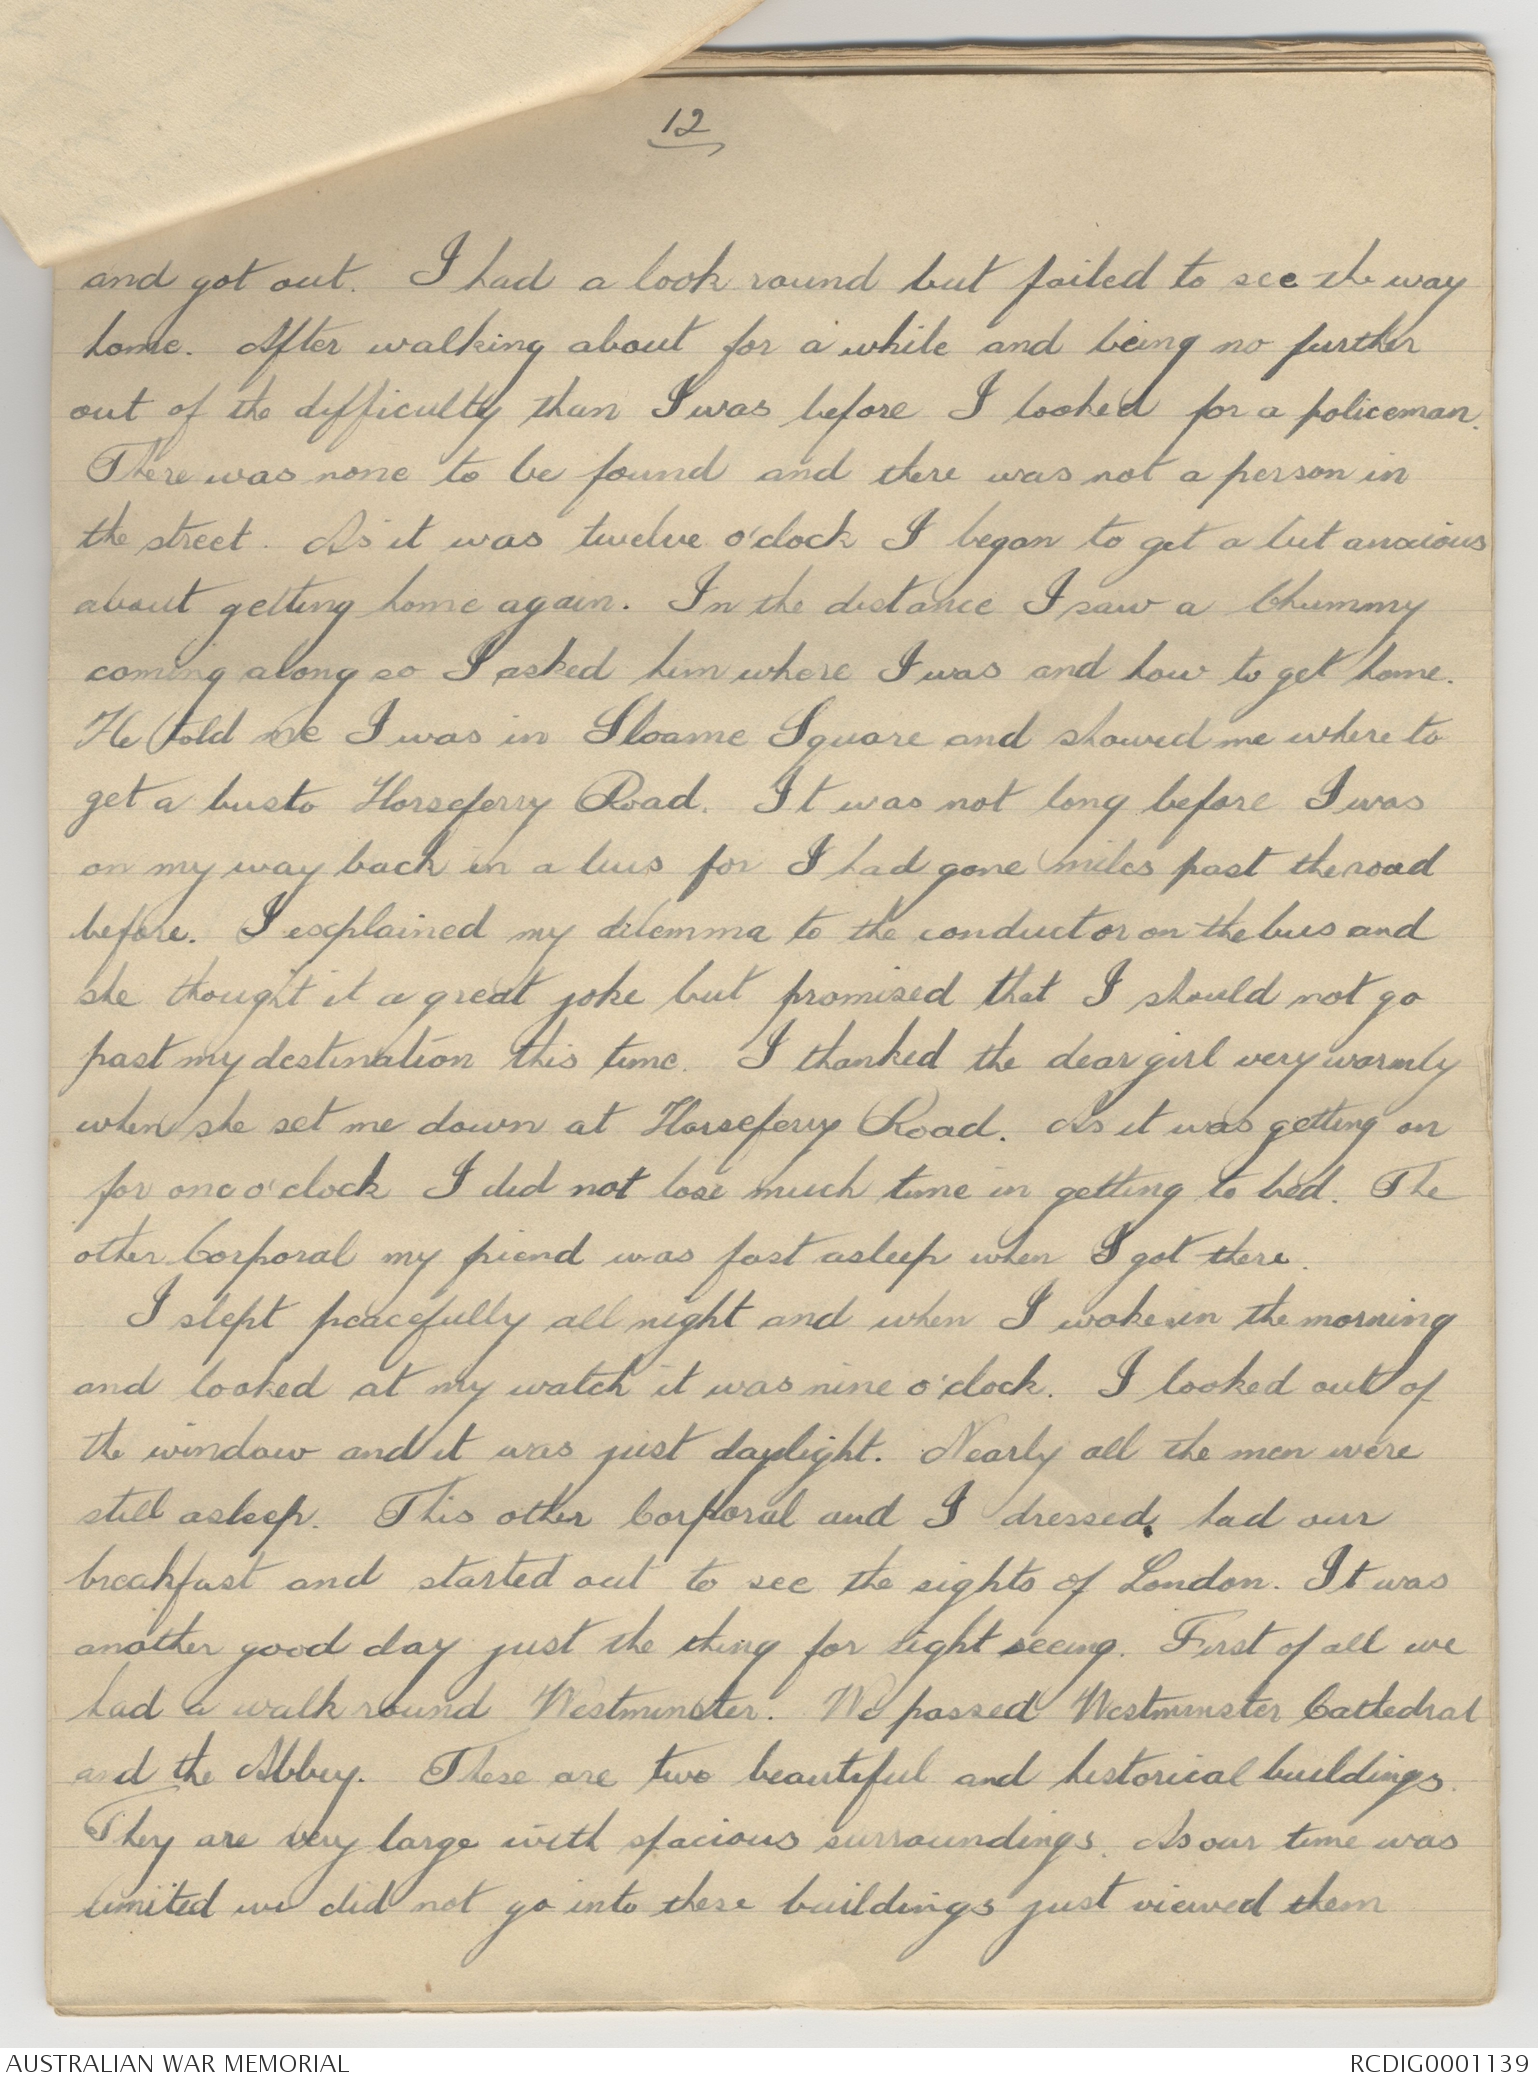 12
and got out. I had a look round but failed to see the way
home. After walking about for a while and being no further
out of the difficulty than I was before I looked for a policeman.
There was none to be found and there was not a person in
the street. As it was twelve o'clock I began to get a bit anxious
about getting home again. In the distance I saw a Chummy
coming along so I asked him where I was and how to get home.
He told me I was in Sloame Square and showed me where to
get a bus to Horseferry Road. It was not long before I was
on my way back in a bus for I had gone miles past the road
before. I explained my dilemma to the conductor on the bus and
she thought it a great joke but promised that I should not go
past my destination this time. I thanked the dear girl very warmly
when she set me down at Horseferry Road. As it was getting on
for one o'clock I did not lose much time in getting to bed. The
other Corporal my friend was fast asleep when I got there.
I slept peacefully all night and when I woke in the morning
and looked at my watch it was nine o'clock. I looked out of
the window and it was just daylight. Nearly all the men were
still asleep. This other Corporal and I dressed, had our
breakfast and started out to see the sights of London. It was
another good day just the thing for sight seeing. First of all we
had a walk round Westminster. We passed Westminster Cathedral
and the Abbey. These are two beautiful and historical buildings.
They are very large with spacious surroundings. As our time was
limited we did not go into these buildings just viewed them
AUSTRALIAN WAR MEMORIAL
RCDIG0001139